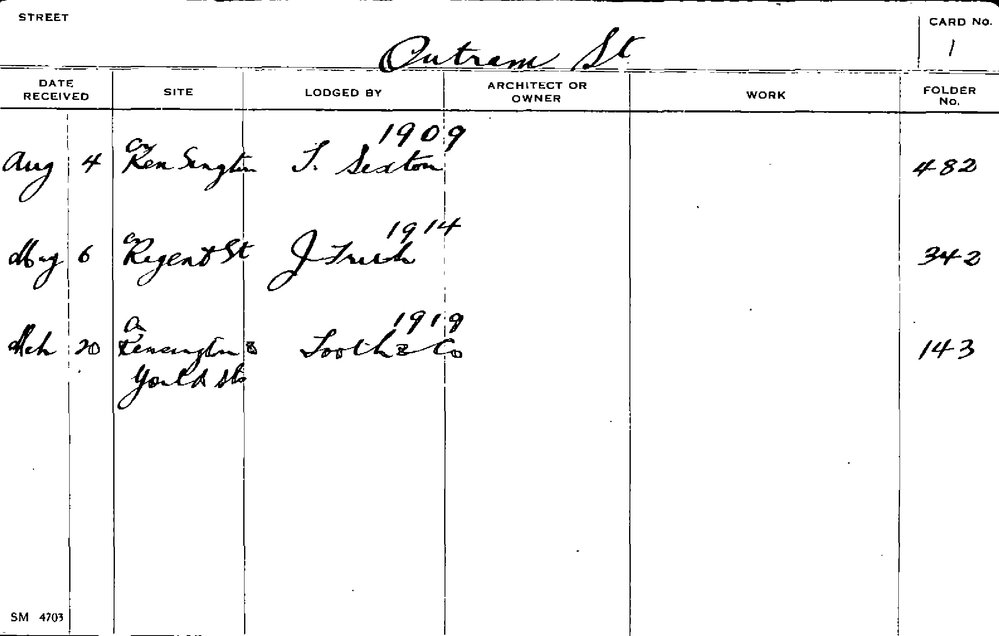 STREET
CARD No.
Outram St
1
DATE RECEIVED
SITE
LODGED BY
ARCHITECT OR OWNER
WORK
FOLDER No.
1909
Aug 4 Cnr Kensington T. Sexton 482
1914
Regent St J 342
6
1919
Mch 20 Kensington & Tooth & Co 143
Sts
SM 4703